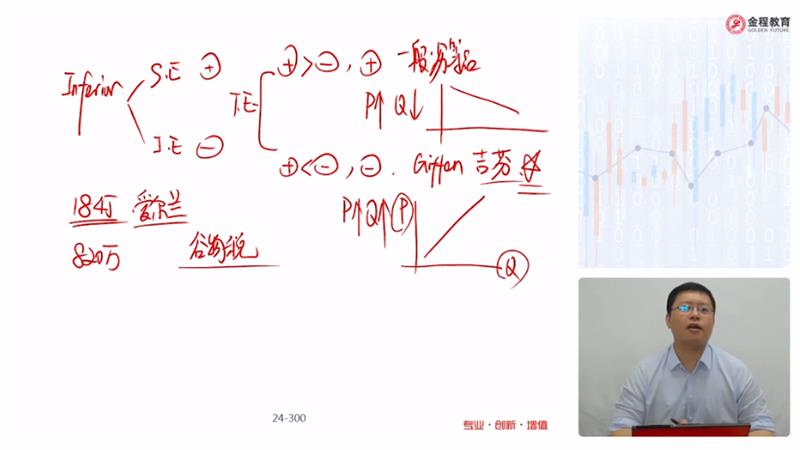 金程教育
GOLDEN FUTURE
Inferior
S.E +
I.E -
T.E
+ > -, + 一般劣等品
P↑ Q↓
+ < -, -. Giffen 吉芬
P↑ Q↑ P
Q
爱尔兰
820万 谷物税
24-300
专业·创新·增值